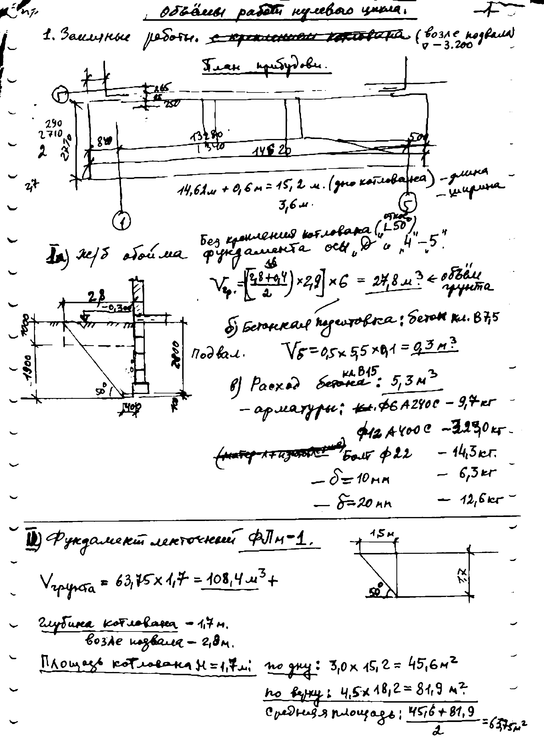 Объёмы работ нулевого цикла.
1. Земляные работы. с креплением котлована (возле подвала)
▽ -3.200
План прибудови.
Г
265
250
290
2710
2
2270
840
13280
1340
14620
500
2,7
14,62м + 0,6м = 15,2 м. (дно котлована) - длина
3,6м. - ширина
1
5
Без крепления котлована (откос ∟50°)
Iа) ж/б обойма фундамента осы „D" и „4"-5."
Vгр. = [(2,8+0,4)/2 × 2,9] × 6 = 27,8 м³ ← объём грунта
2,8
-0,300
1000
1900
2800
50°
400
Подвал.
б) Бетонная подготовка: бетон кл. В7,5
Vб = 0,5 × 5,5 × 0,1 = 0,3 м³
в) Расход бетона: кл.В15 5,3 м³
- арматуры: Ф6 А240С - 9,7 кг
Ф12 А400С - 323,0 кг
Болт Ф22 - 14,3 кг.
- δ = 10 мм - 6,3 кг
- δ = 20 мм - 12,6 кг
II) Фундамент ленточный ФЛм-1.
1,5м
50°
1,7
Vгрунта = 63,75 × 1,7 = 108,4 м³ +
Глубина котлована - 1,7 м.
возле подвала - 2,8 м.
Площадь котлована H = 1,7м: по дну: 3,0 × 15,2 = 45,6 м²
по верху: 4,5 × 18,2 = 81,9 м².
Средняя площадь: (45,6 + 81,9)/2 = 63,75 м²